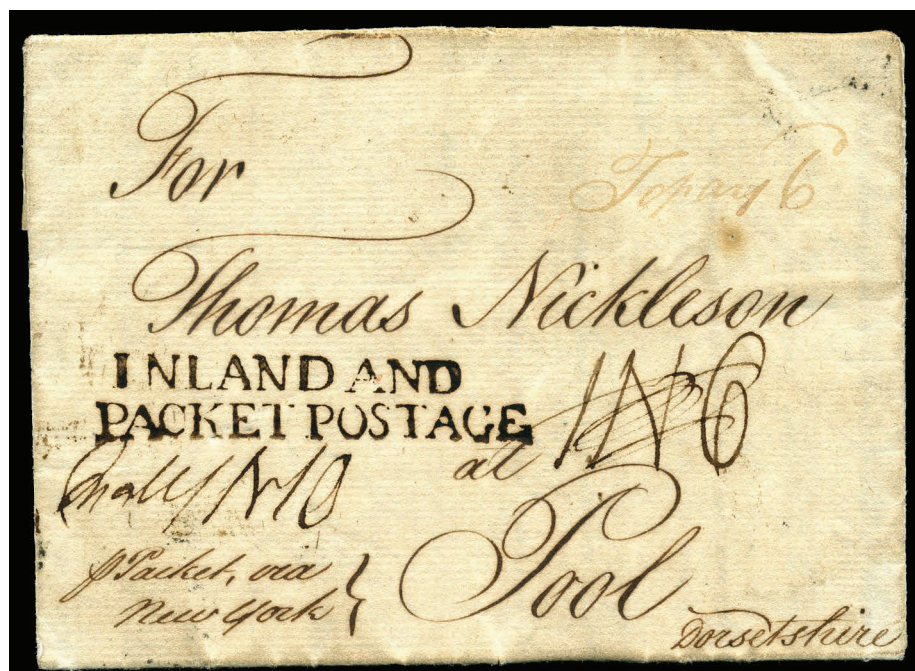 For
To pay 6
Thomas Nickleson
INLAND AND
PACKET POSTAGE
at 1N6
in all 1/N10
p Packet, via
New York
Pool
Dorsetshire